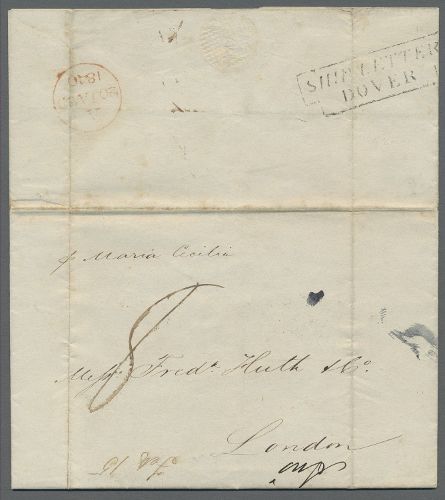 SHIP LETTER
DOVER
1840
p Maria Cecilia
8
Messrs Fredk Huth & Co.
London